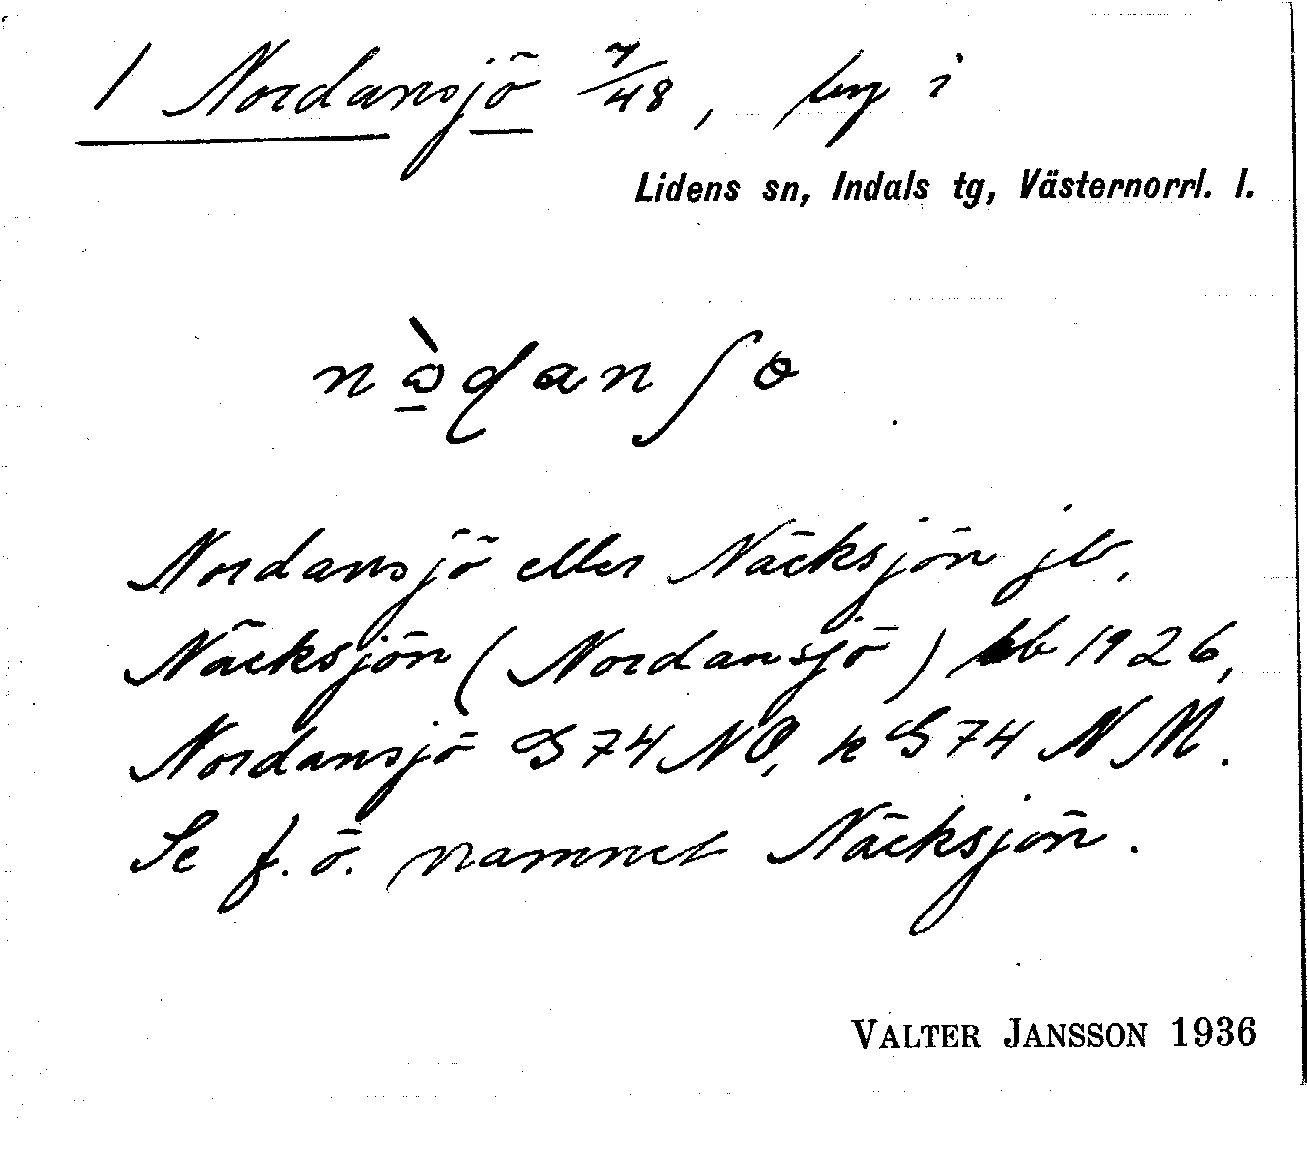 1 Nordansjö 7/48, by i
Lidens sn, Indals tg, Västernorrl. l.
Nordansjö eller Näcksjön jb,
Näcksjön (Nordansjö) kb 1926,
Nordansjö S74NO, k S74 NM.
Se f. ö. namnet Näcksjön.
VALTER JANSSON 1936